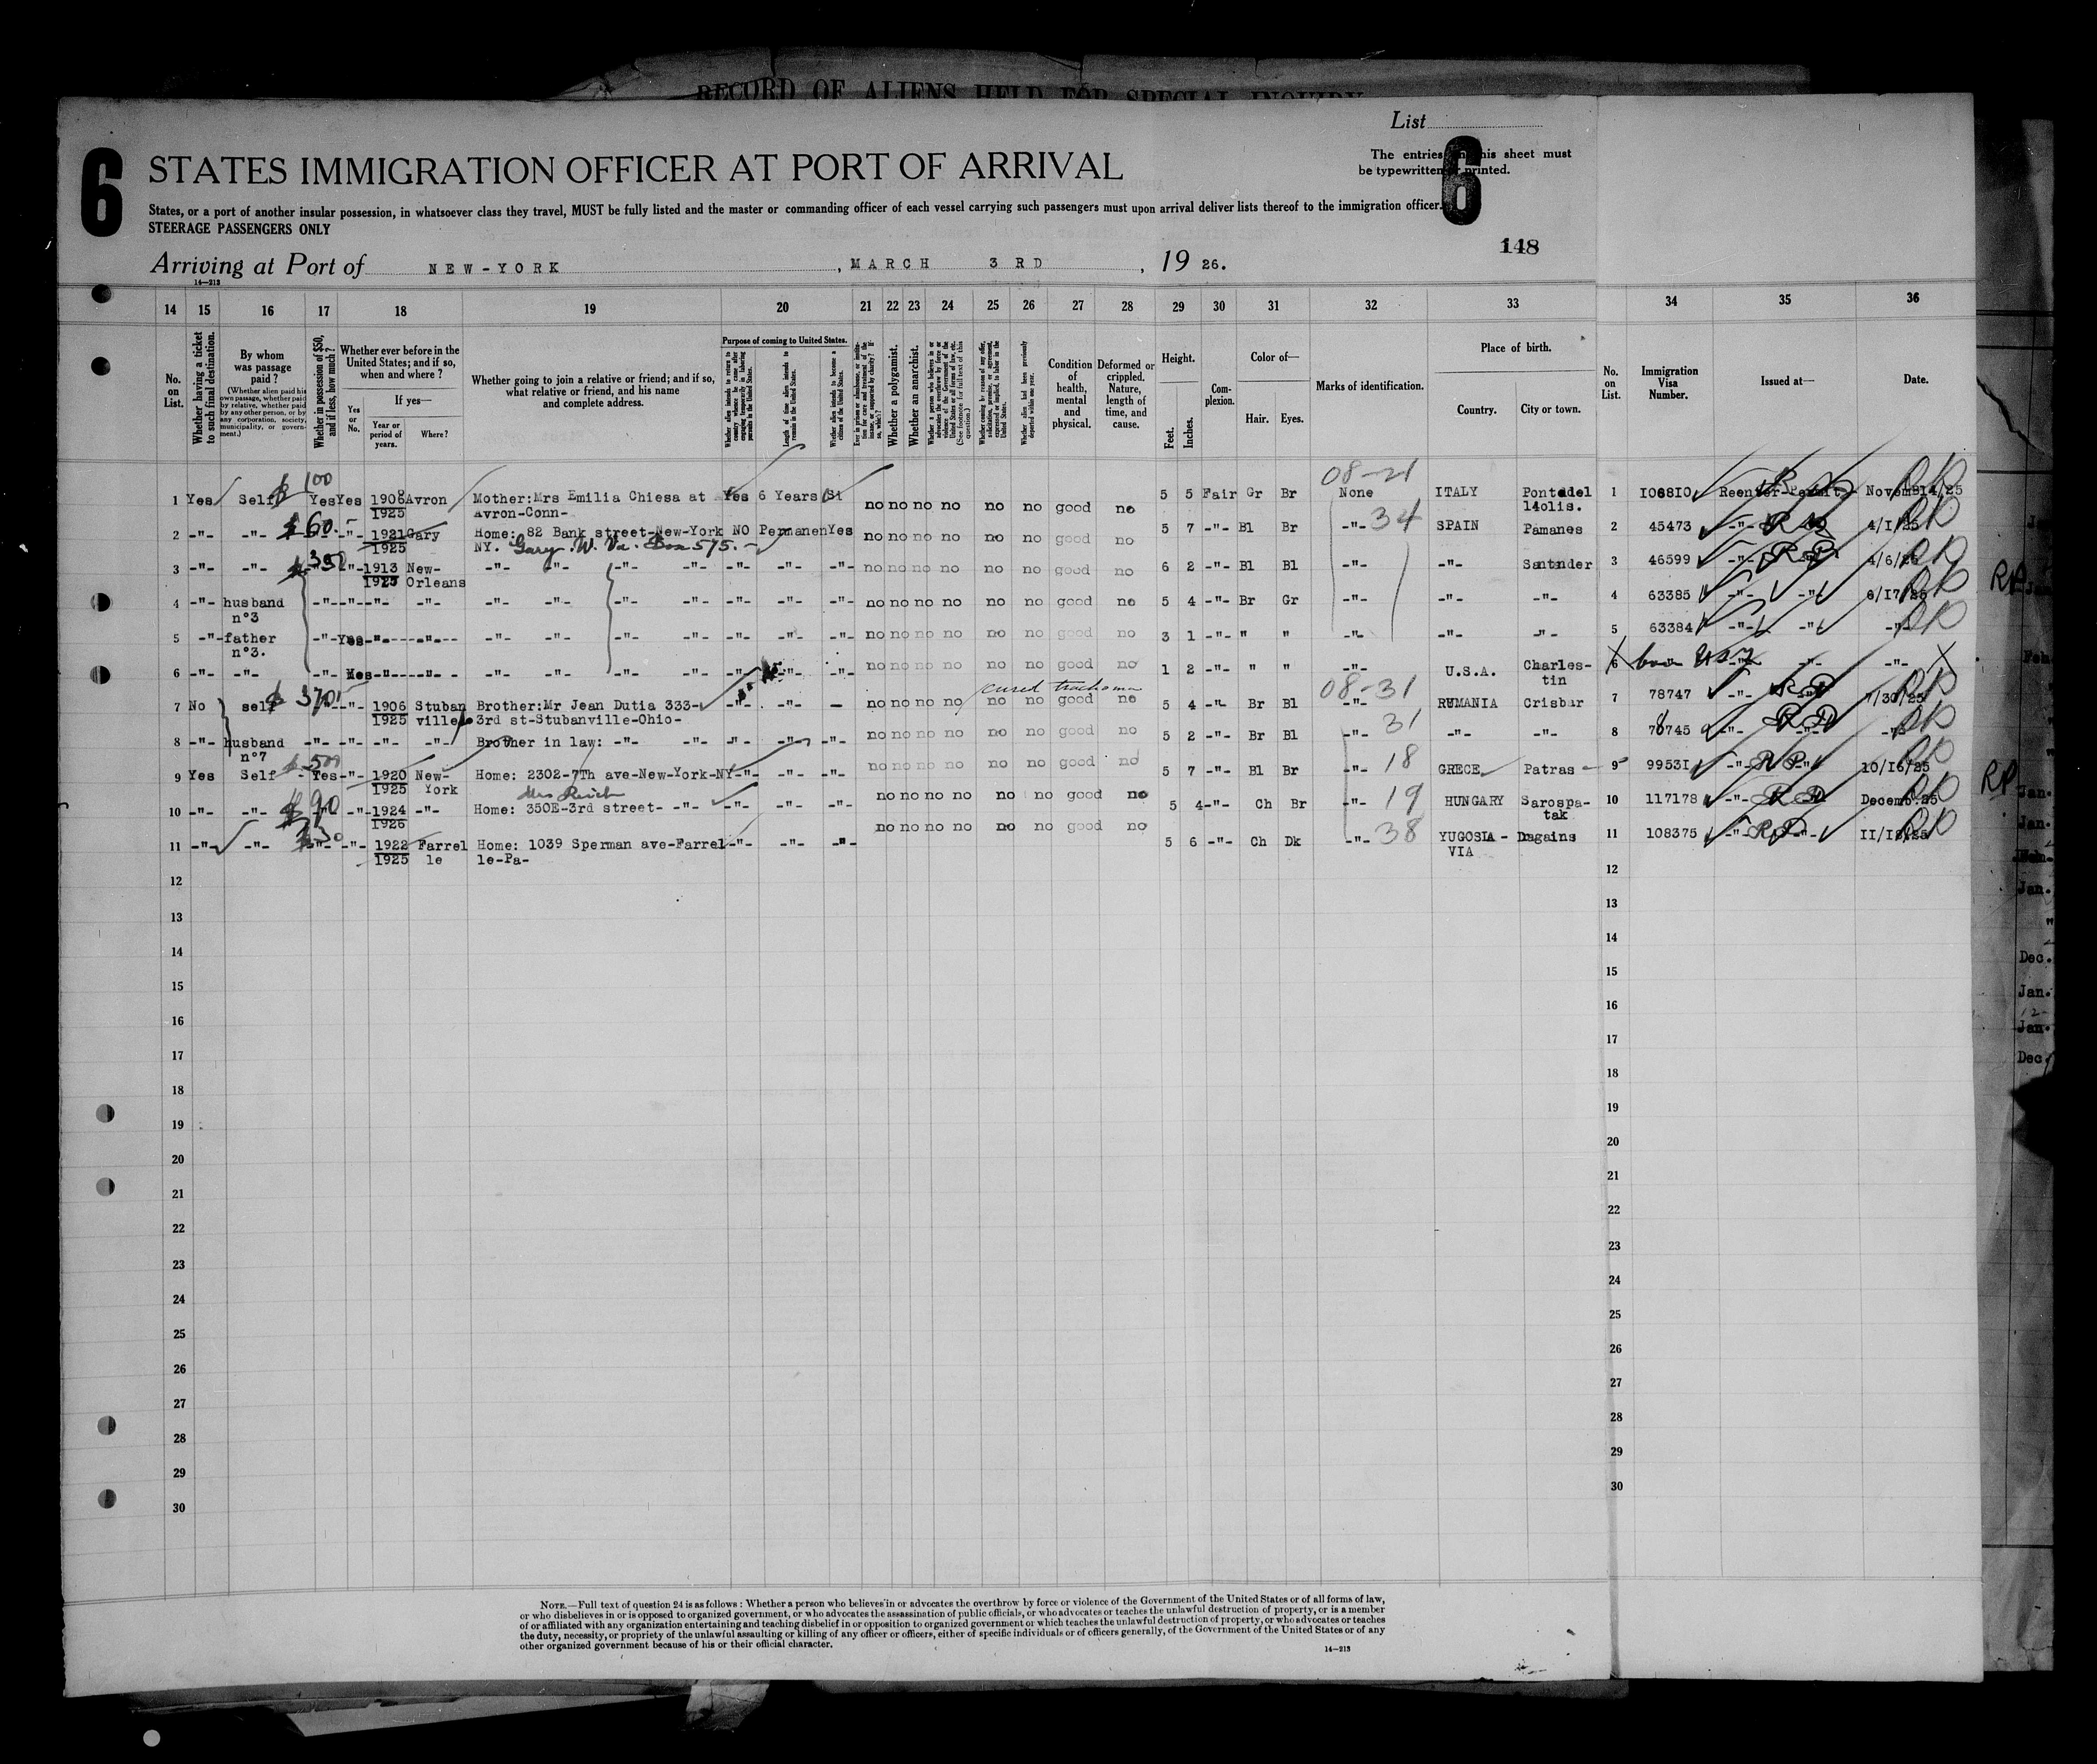 RECORD OF ALIENS HELD FOR SPECIAL INQUIRY
List
6 STATES IMMIGRATION OFFICER AT PORT OF ARRIVAL
The entries on this sheet must
be typewritten or printed.
6
States, or a port of another insular possession, in whatsoever class they travel, MUST be fully listed and the master or commanding officer of each vessel carrying such passengers must upon arrival deliver lists thereof to the immigration officer.
STEERAGE PASSENGERS ONLY
148
Arriving at Port of NEW-YORK , MARCH 3RD , 19 26.
14—213
14 15 16 17 18 19 20 21 22 23 24 25 26 27 28 29 30 31 32 33 34 35 36
No. on List.
Whether having a ticket to such final destination.
By whom was passage paid?
(Whether alien paid his own passage, whether paid by relative, whether paid by any other person, or by any corporation, society, municipality, or government.)
Whether in possession of $50, and if less, how much?
Whether ever before in the United States; and if so, when and where?
Yes or No.
If yes—
Year or period of years.
Where?
Whether going to join a relative or friend; and if so, what relative or friend, and his name and complete address.
Purpose of coming to United States.
Whether alien intends to return to country whence he came after engaging temporarily in laboring pursuits in the United States.
Length of time alien intends to remain in the United States.
Whether alien intends to become a citizen of the United States.
Whether a polygamist.
Whether an anarchist.
Condition of health, mental and physical.
Deformed or crippled. Nature, length of time, and cause.
Height.
Feet.
Inches.
Complexion.
Color of—
Hair.
Eyes.
Marks of identification.
Place of birth.
Country.
City or town.
No. on List.
Immigration Visa Number.
Issued at—
Date.
1 Yes Self $100 Yes Yes 1908 1925 Avron Mother:Mrs Emilia Chiesa at Avron-Conn- Yes 6 Years Si no no no no no no good no 5 5 Fair Gr Br 08-21 None ITALY 1 106810 Reenter-Permit- Novem
2 -"- -"- $60.- -"- 1921 1925 Gary Home: 82 Bank street-New-York NY. Gary. W. Va. Box 575.- NO Permanen Yes no no no no no no good no 5 7 -"- Bl Br -"- 34 SPAIN Pamanes 2 45473 -"- 4/1/25
3 -"- -"- -"- -"- 1913 1925 New-Orleans -"- -"- -"- -"- -"- -"- -"- no no no no no no good no 6 2 -"- Bl Bl -"- -"- Santander 3 46599 -"- 4/6/25
4 -"- husband n°3 -"- -"- -"- -"- -"- -"- -"- -"- -"- -"- -"- no no no no no no good no 5 4 -"- Br Gr -"- -"- -"- 4 63385 -"- -"- 6/17/25
5 -"- father n°3. -"- Yes -"- -"- -"- -"- -"- -"- -"- -"- -"- no no no no no no good no 3 1 -"- " " -"- -"- -"- 5 63384 -"- -"- -"-
6 -"- -"- -"- -"- -"- -"- -"- -"- -"- -"- no no no no no no good no 1 2 -"- " " -"- U.S.A. Charles-tin 6 -"- -"- -"-
cured trachoma
7 No self $370 -"- -"- 1906 1925 Stubanville Brother:Mr Jean Dutia 333-3rd st-Stubanville-Ohio- -"- -"- - no no no no no no good no 5 4 -"- Br Bl 08-31 -"- RUMANIA Crisbar 7 78747 -"- 7/30/25
8 -"- husband n°7 -"- -"- -"- -"- Brother in law: -"- -"- -"- -"- -"- no no no no no no good no 5 2 -"- Br Bl -"- 31 -"- -"- 8 78745 -"- -"-
9 Yes Self Yes -"- 1920 1925 New-York Home: 2302-7Th ave-New-York-NY -"- -"- -"- no no no no no no good no 5 7 -"- Bl Br -"- 18 GRECE Patras 9 99531 -"- -"- 10/16/25
10 -"- -"- $90 -"- -"- 1924 1926 -"- Home: 350E-3rd street- -"- -"- -"- -"- no no no no no no good no 5 4 -"- Ch Br -"- 19 HUNGARY Sarospa-tak 10 117178 -"- Decemb.25
11 -"- -"- $30 -"- -"- 1922 1925 Farrel le Home: 1039 Sperman ave-Farrel le-Pa- -"- -"- -"- no no no no no no good no 5 6 -"- Ch Dk -"- 38 YUGOSLA-VIA Dagains 11 108375 -"- -"-
12 12
13 13
14 14
15 15
16 16
17 17
18 18
19 19
20 20
21 21
22 22
23 23
24 24
25 25
26 26
27 27
28 28
29 29
30 30
NOTE.—Full text of question 24 is as follows: Whether a person who believes in or advocates the overthrow by force or violence of the Government of the United States or of all forms of law,
or who disbelieves in or is opposed to organized government, or who advocates the assassination of public officials, or who advocates or teaches the unlawful destruction of property, or is a member
of or affiliated with any organization entertaining and teaching disbelief in or opposition to organized government or which teaches the unlawful destruction of property, or who advocates or teaches
the duty, necessity, or propriety of the unlawful assaulting or killing of any officer or officers, either of specific individuals or of officers generally, of the Government of the United States or of any
other organized government because of his or their official character.
14—213